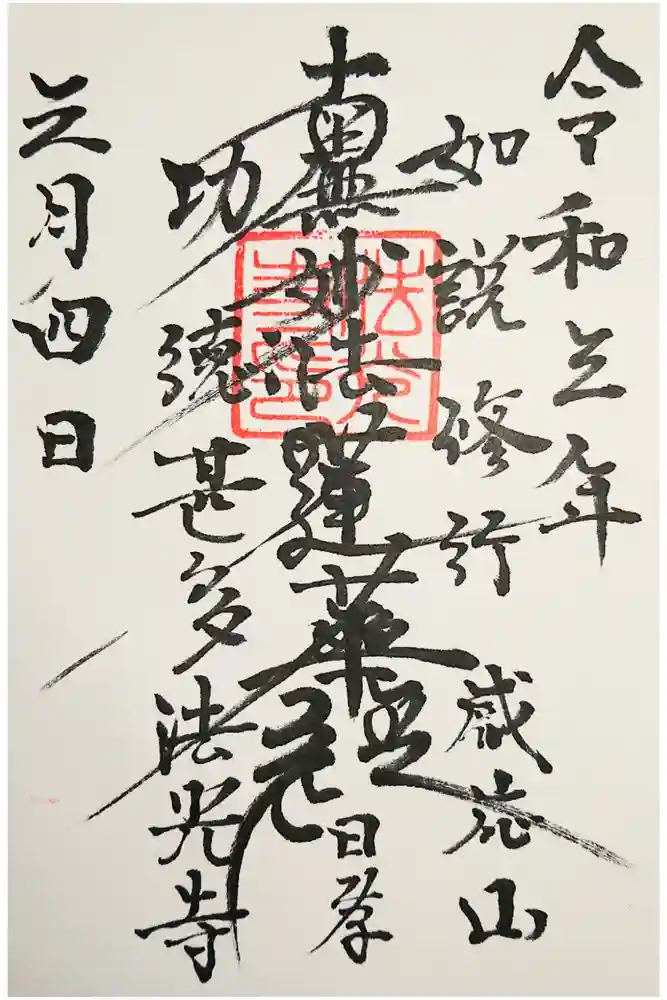 令和三年
如説修行
山
南無妙法蓮華経
日
功徳甚多
法光寺
三月四日